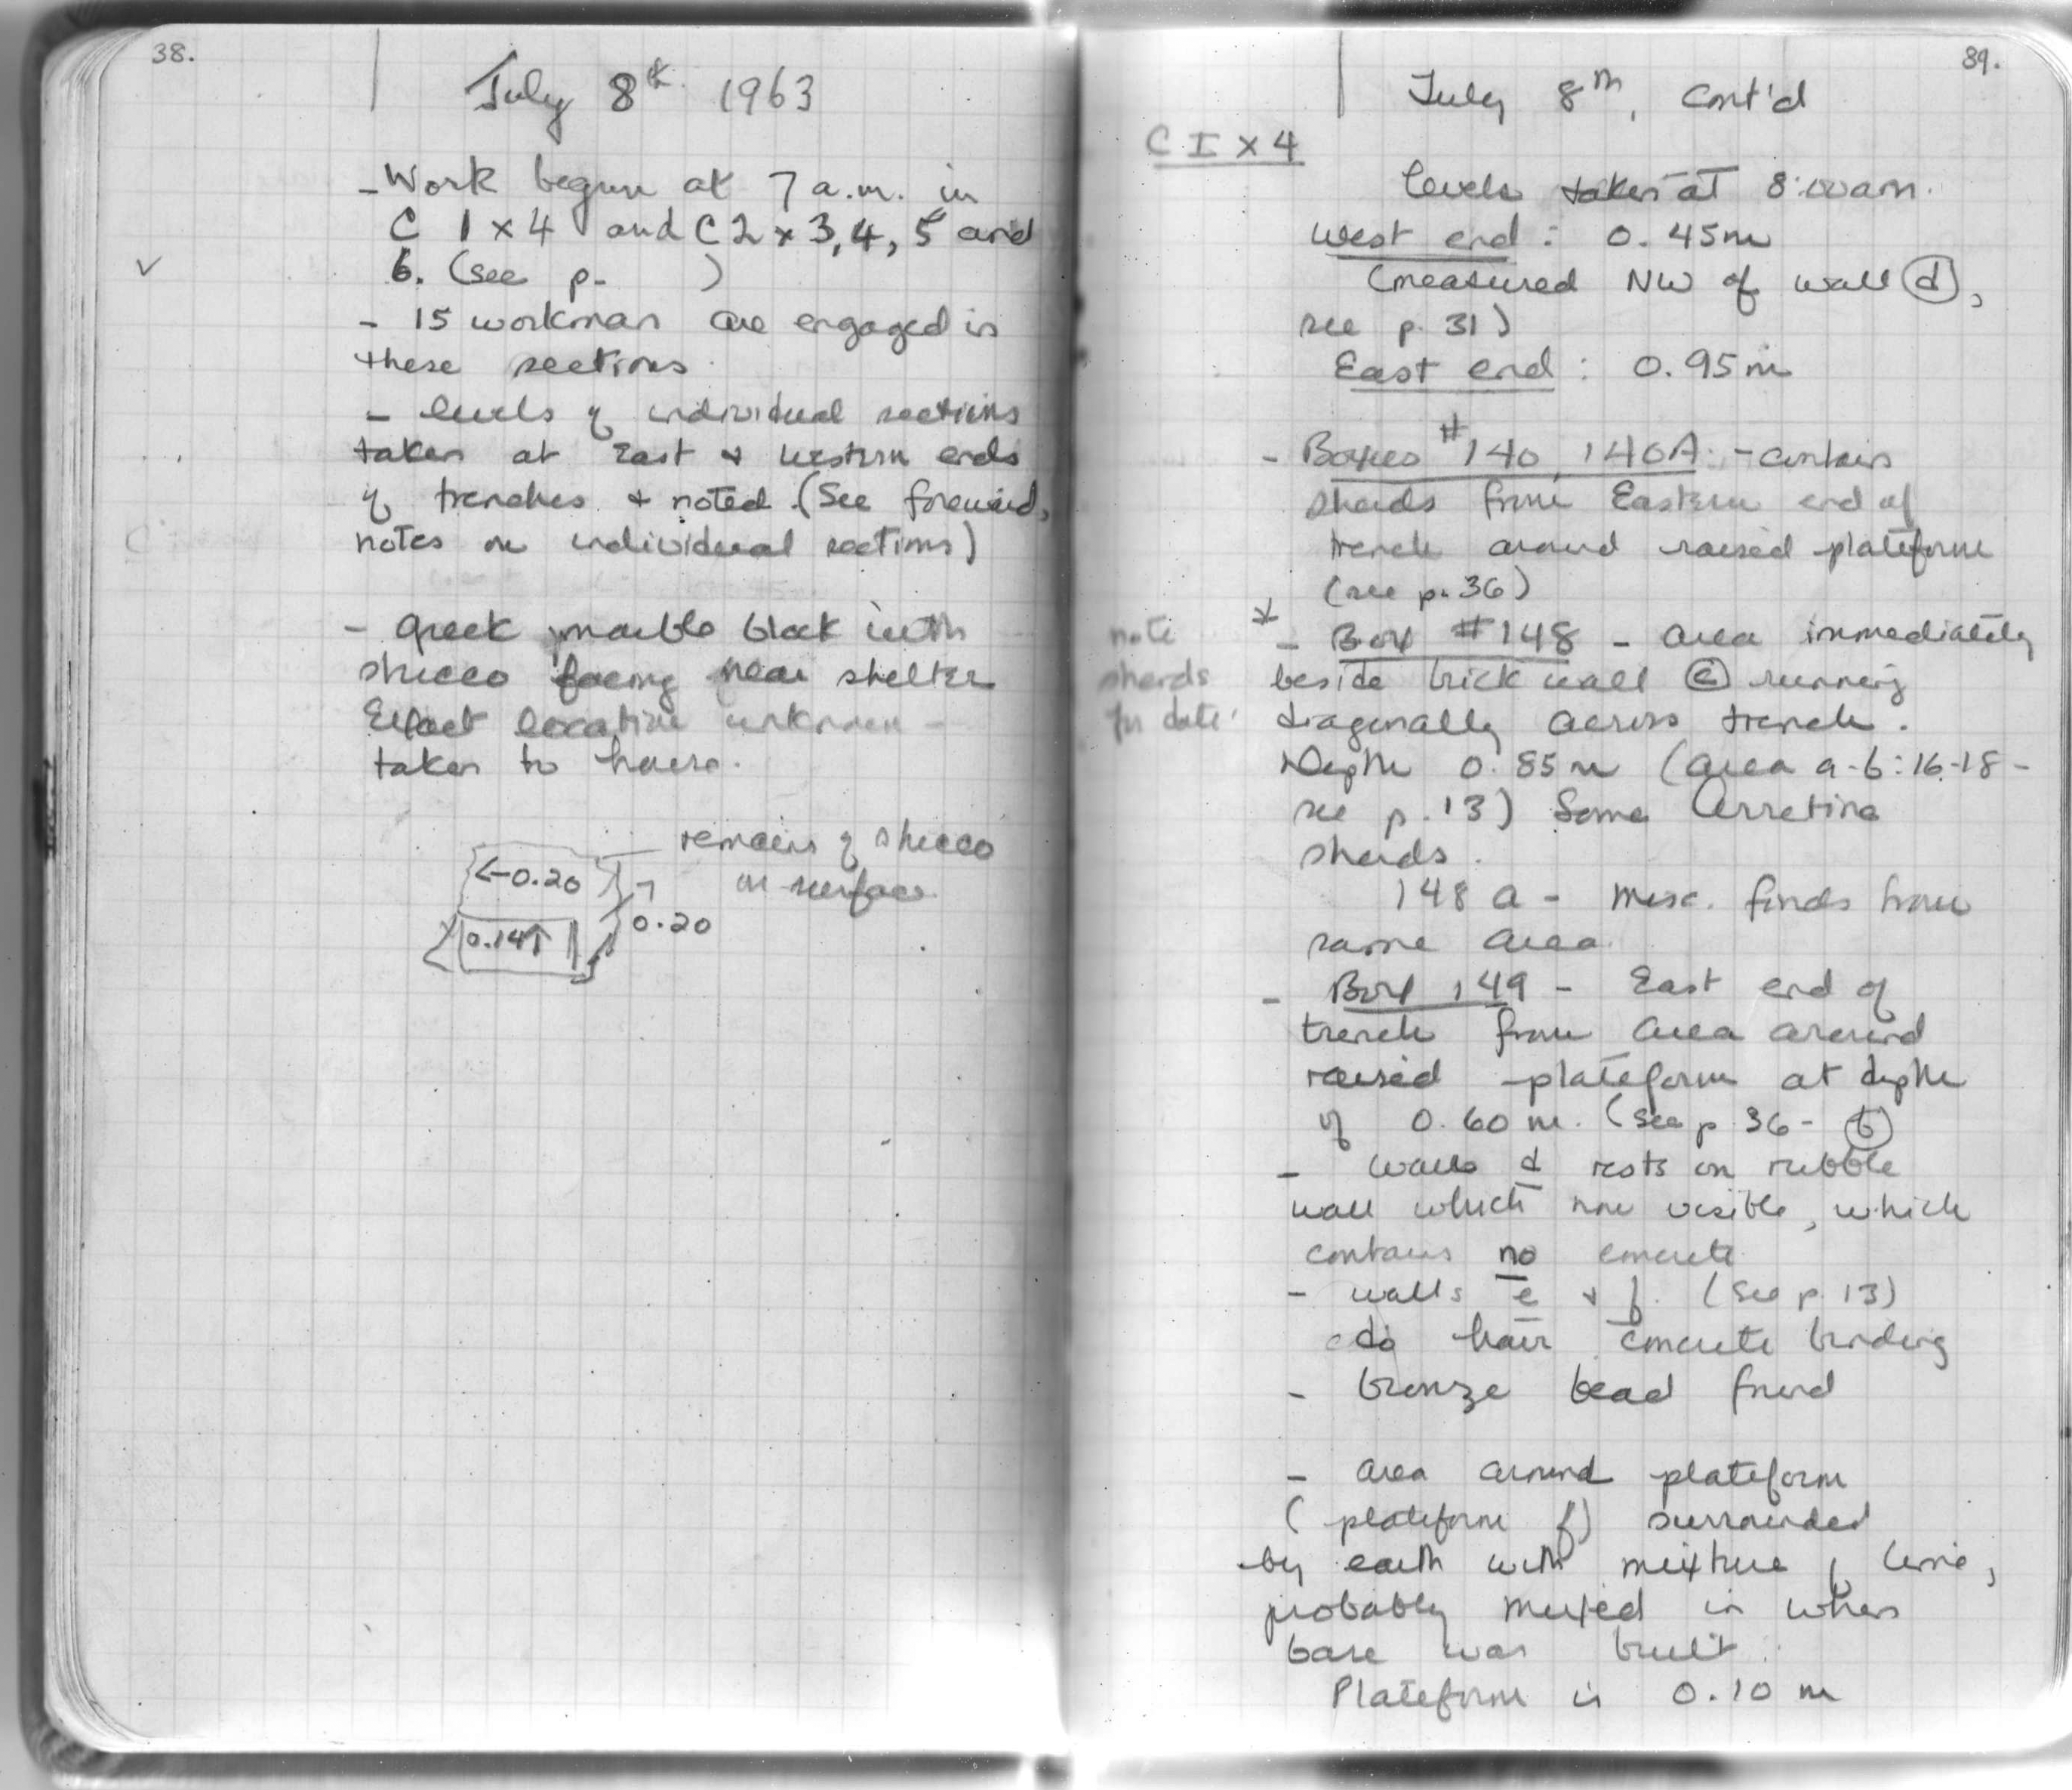 38.
July 8th 1963
- Work begun at 7 a.m. in
C 1 x 4 and C2 x 3, 4, 5 and
6. (see p. )
- 15 workman are engaged in
these sections.
- levels of individual sections
taken at East & western ends
of trenches & noted. (See forward,
notes on individual sections)
- Greek marble block with
stucco facing near shelter
Exact location unknown -
taken to house.
remains of stucco
on surface
←0.20
0.20
0.14↑
39.
July 8th, Cont'd
C I x 4
levels taken at 8:00 am.
West end: 0.45m
(measured NW of wall (d),
see p. 31)
East end: 0.95m
- Boxes #140, 140A: - contain
sherds from Eastern end of
trench around raised plateform
(see p. 36)
note
sherds
for date
* - Box #148 - area immediately
beside brick wall running
diagonally across trench.
Depth 0.85m (area a-b: 16-18 -
see p. 13) Some Arretine
sherds.
148 a - misc. finds from
same area.
- Box 149 - East end of
trench from area around
raised plateform at depth
of 0.60 m. (see p. 36 - (b)
- walls d rests on rubble
wall which now visible, which
contains no concrete
- walls e & f. (see p. 13)
do have concrete binding
- bronze bead found
- area around plateform
(plateform f) surrounded
by earth with mixture of lime,
probably mixed in when
base was built.
Plateform is 0.10 m